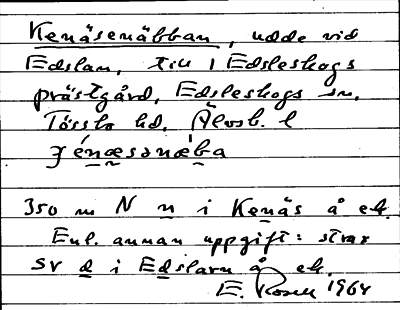 Kenäsenäbban, udde vid
Edslan, till 1 Edsleskogs
prästgård, Edsleskogs sn,
Tössbo hd, Älvsb. l
ʒénæsənæba
350 m N n i Kenäs å ek.
Enl. annan uppgift: strax
SV d i Edslarn å ek.
E. Rosell 1964